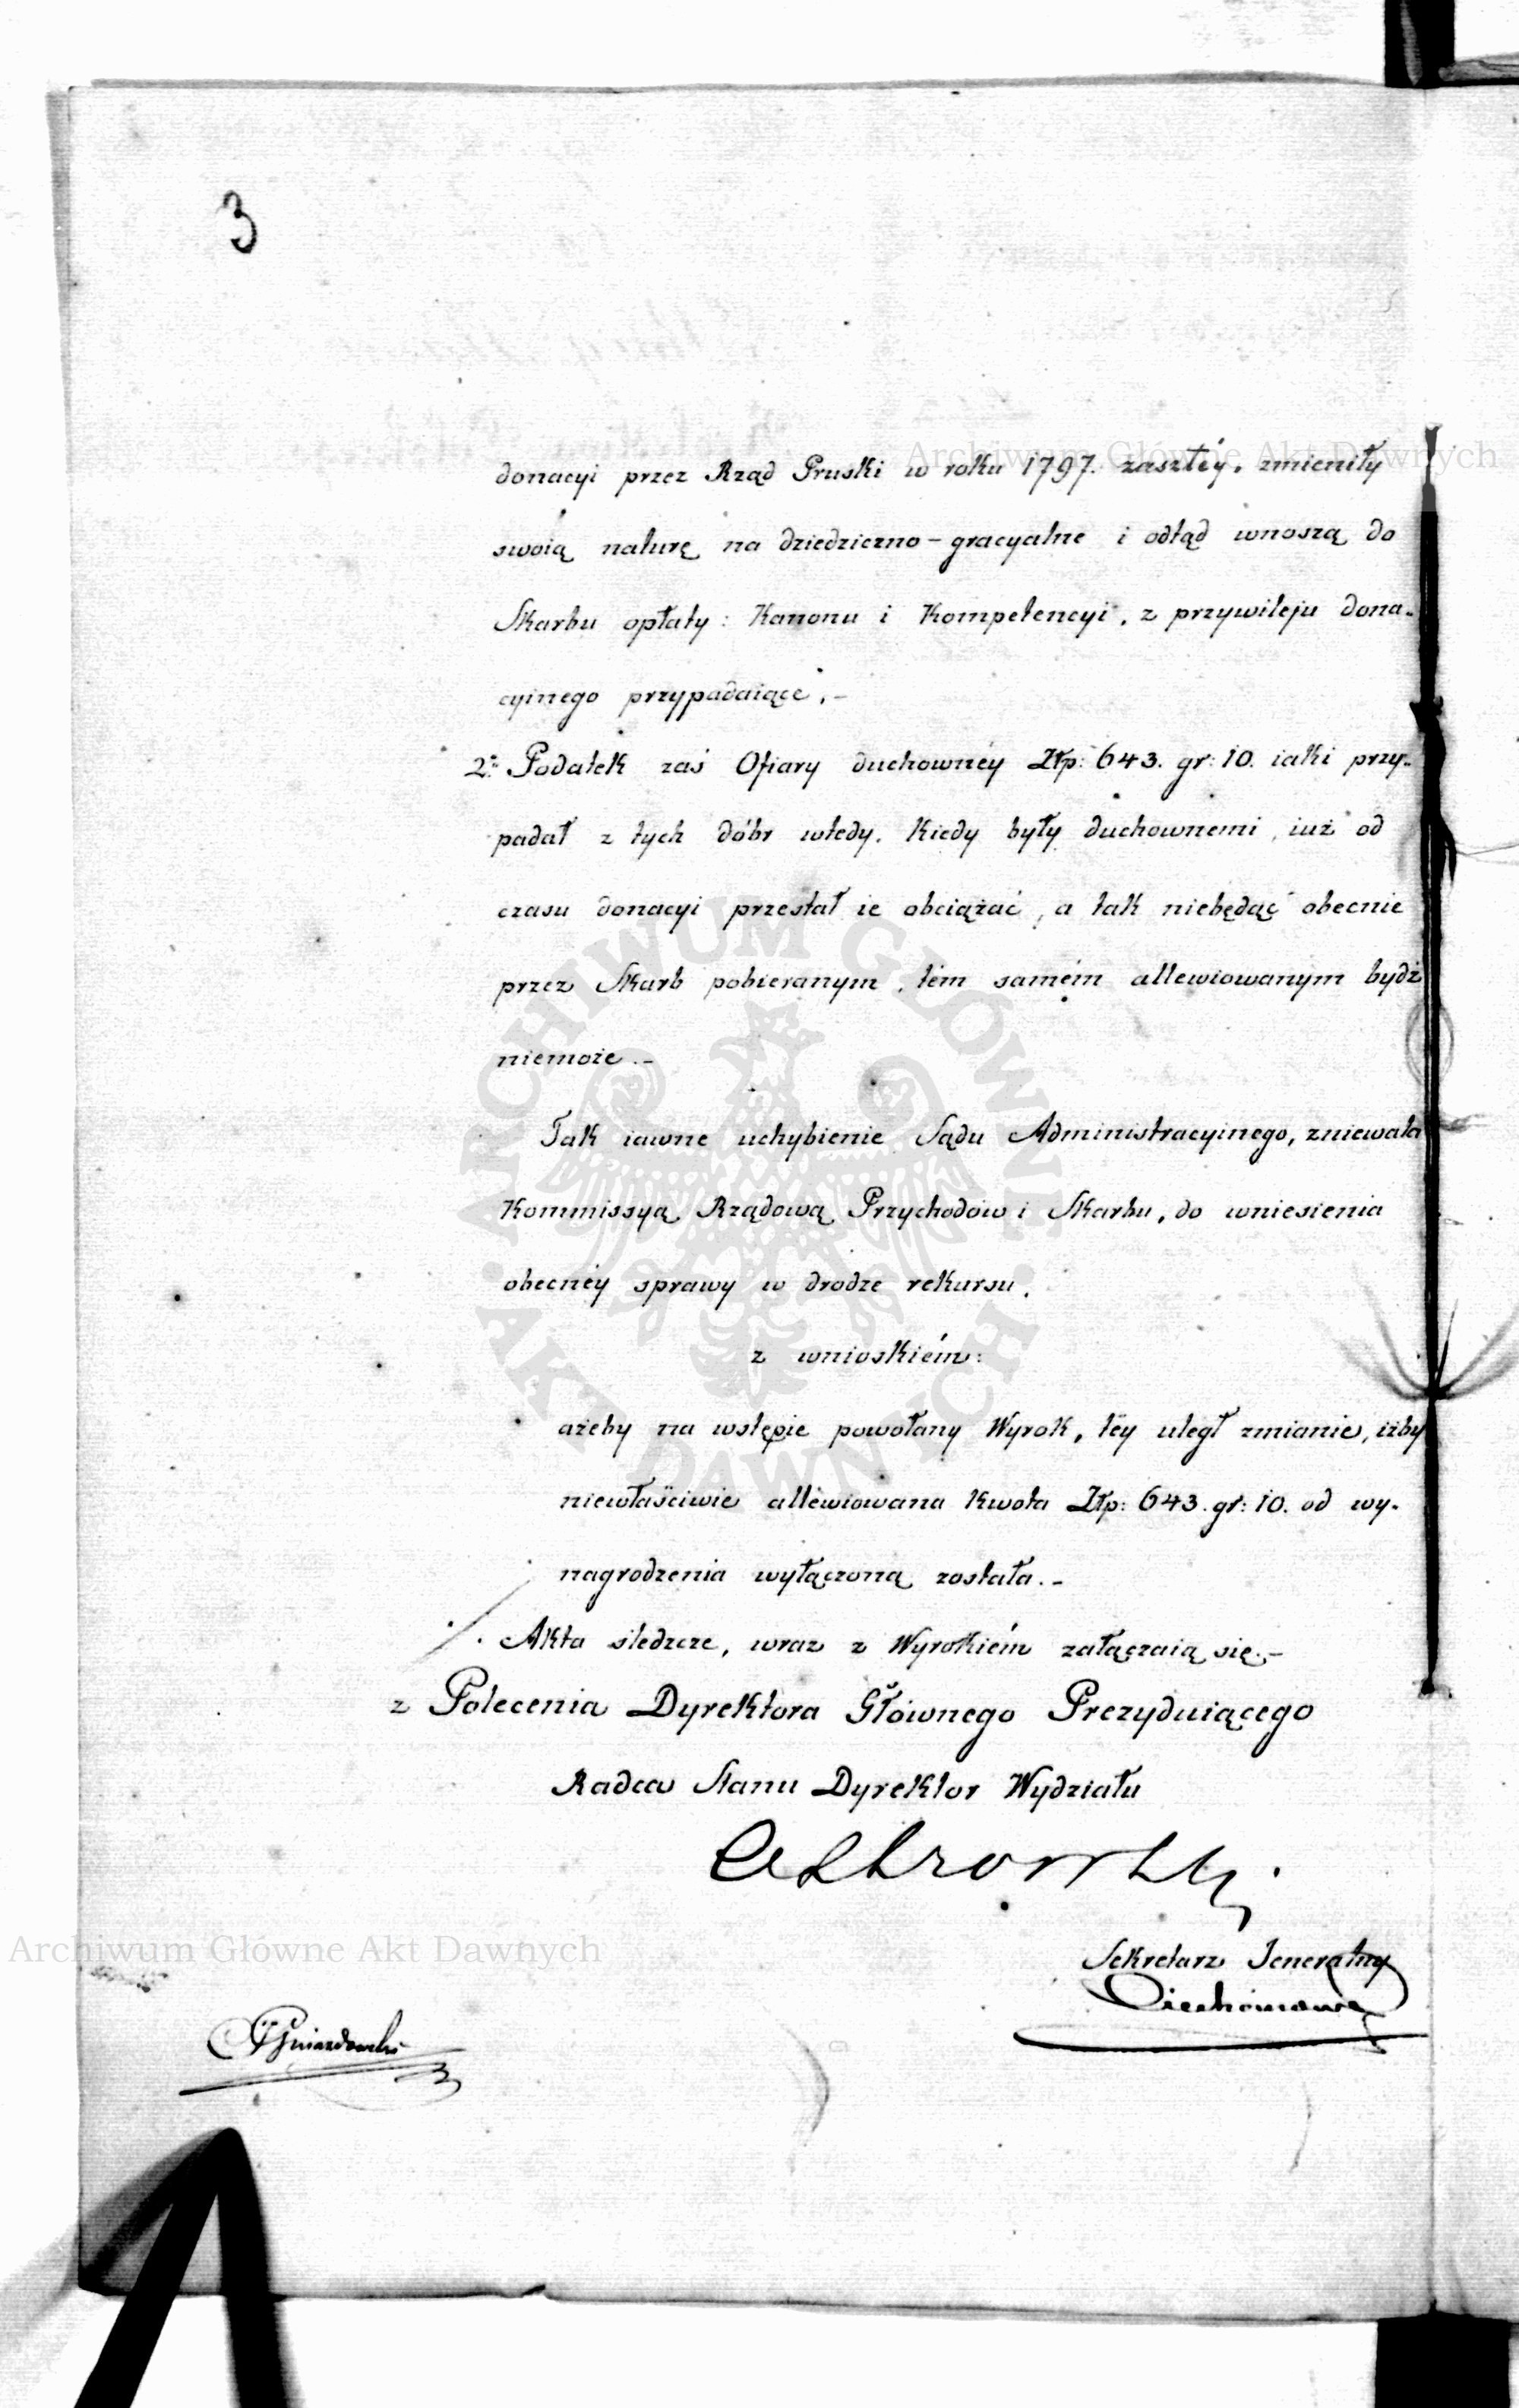 3
donacyi przez Rząd Pruski w roku 1797. zaszłéy, zmieniły
swoią naturę na dziedziczno-gracyalne i odtąd wnoszą do
Skarbu opłaty: Kanonu i Kompetencyi, z przywileju dona-
cyinego przypadaiące.-
2º Podatek zaś Ofiary duchownéy Złp: 643. gr: 10. iaki przy-
padał z tych dóbr wtedy, kiedy były duchownemi, iuż od
czasu donacyi przestał ie obciążać, a tak niebędąc obecnie
przez Skarb pobieranym, tém samém allewiowanym bydź
niemoże.-
Tak iawne uchybienie Sądu Administracyinego, zniewala
Kommissyą Rządową Przychodów i Skarbu, do wniesienia
obecnéy sprawy w drodze rekursu,
z wnioskiém:
ażeby na wstępie powołany Wyrok, téy uległ zmianie, iżby
niewłaściwie allewiowana kwota Złp: 643. gr: 10. od wy-
nagrodzenia wyłączoną została.-
./. Akta śledzcze, wraz z Wyrokiém załączaią się.-
z Polecenia Dyrektora Głównego Prezyduiącego
Radca Stanu Dyrektor Wydziału
Sekretarz Jeneralny
Gniazdowski
Archiwum Główne Akt Dawnych
ARCHIWUM GŁÓWNE AKT DAWNYCH
Archiwum Główne Akt Dawnych